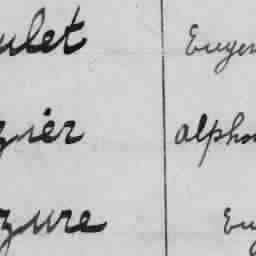 ulet Eugen
zier alpho
zure Eu